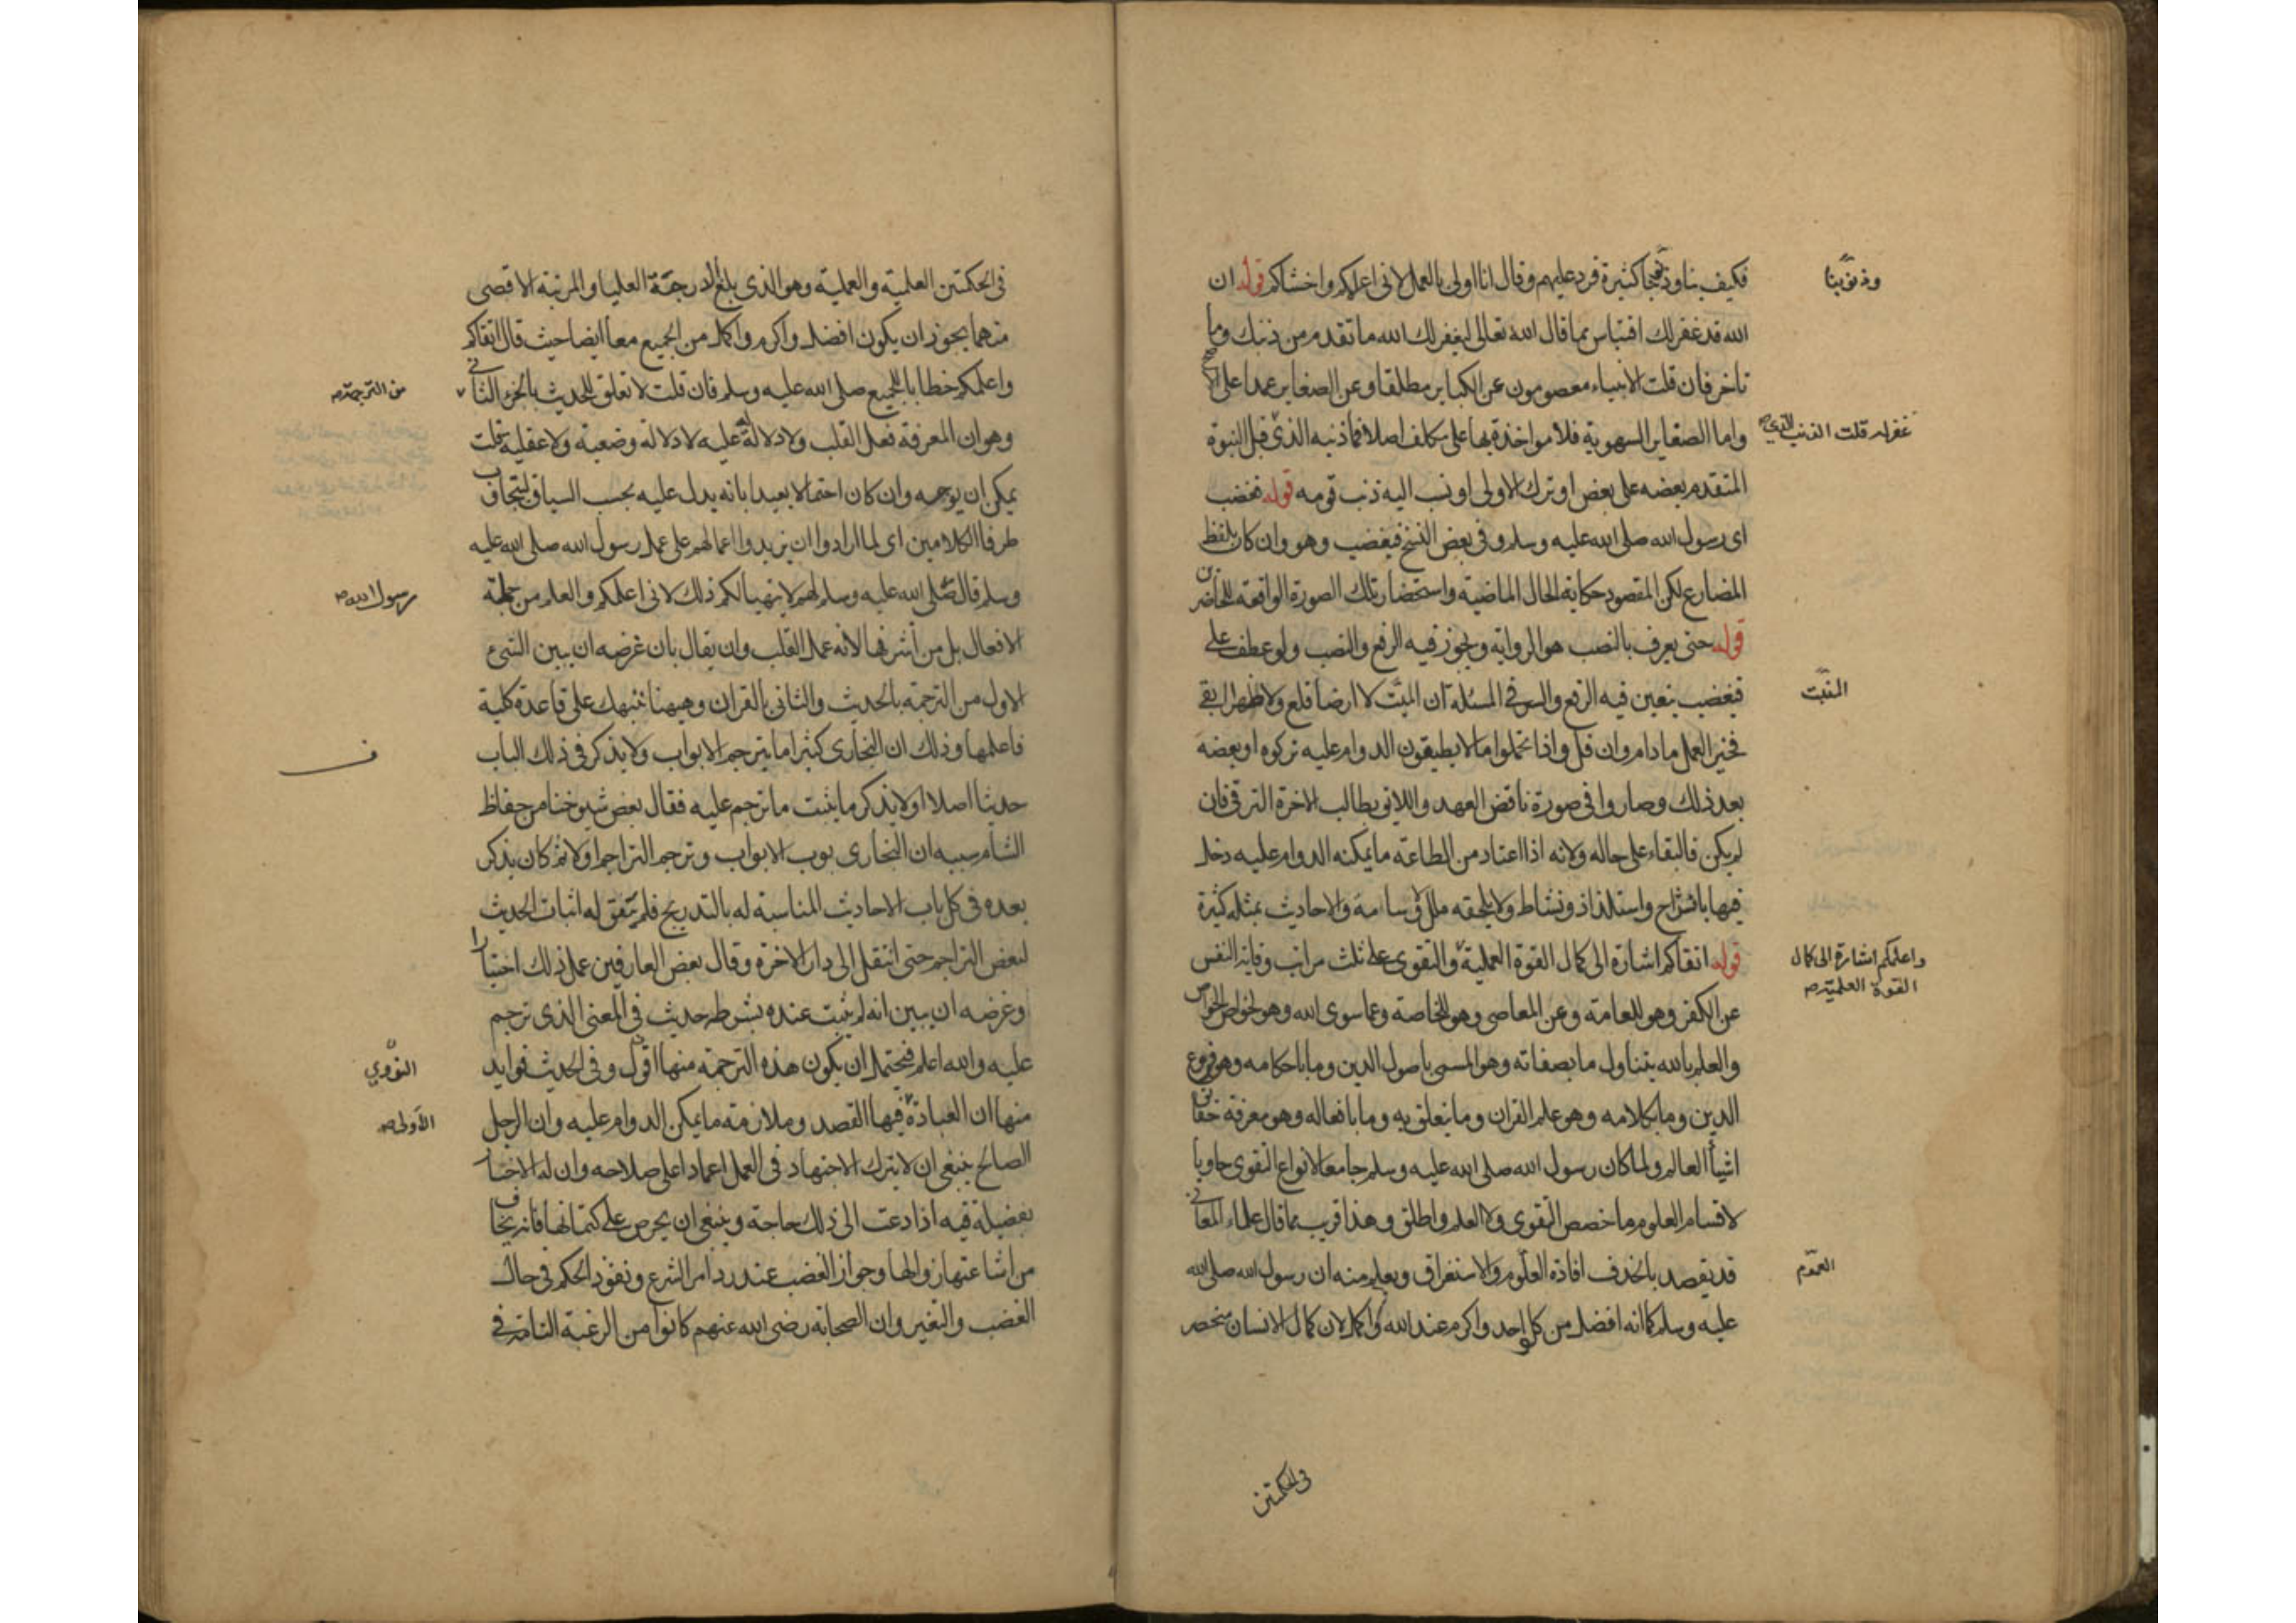 فكيف بنا وذنوبنا كثيرة فرد عليهم وقال انا اولى بالعمل لاني اعلمكم واخشاكم قوله ان
وذنوبنا
الله قد غفر لك اقتباس مما قال الله تعالى ليغفر لك الله ما تقدم من ذنبك وما
تاخر فان قلت الانبياء معصومون عن الكباير مطلقا وعن الصغاير عمدا على الاصح
واما الصغاير السهوية فلا مواخذة بها على مكلف اصلا فما ذنبه الذي قبل النبوة
غفر له قلت الذنب الذي صح
المتقدم بعضه على بعض او ترك الاولى او نسب اليه ذنب قومه قوله فغضب
اى رسول الله صلى الله عليه وسلم وفي بعض النسخ فيغضب وهو وان كان بلفظ
المضارع لكن المقصود حكاية الحال الماضية واستحضار تلك الصورة الواقعة للحاضرين
قوله حتى يعرف بالنصب هو الرواية ويجوز فيه الرفع والنصب ولو عطف على
فيغضب يتعين فيه الرفع والسر في المسئلة ان الميت لا ارضا قطع ولا ظهرا ابقى
المنبت
فخير العمل ما دام وان قل واذا تحملوا ما لا يطيقون الدوام عليه تركوه او بعضه
بعد ذلك وصاروا في صورة ناقض العهد واللائق بطالب الاخرة الترقي فان
لم يكن فالبقاء على حاله ولانه اذا اعتاد من الطاعة ما يمكنه الدوام عليه دخل
فيها بانشراح واستلذاذ ونشاط ولا يلحقه ملل ولا سامة والاحاديث بمثله كثيرة
قوله اتقاكم اشارة الى كمال القوة العملية والتقوى على ثلث مراتب وقاية النفس
واعلمكم اشارة الى كمال
القوة العلمية صح
عن الكفر وهو للعامة وعن المعاصى وهو للخاصة وعما سوى الله وهو لخواص الخواص
والعلم بالله يتناول ما بصفاته وهو المسمى باصول الدين وما باحكامه وهو فروع
الدين وما بكلامه وهو علم القران وما يتعلق به وما بافعاله وهو معرفة حقائق
اشياء العالم ولما كان رسول الله صلى الله عليه وسلم جامعا لانواع التقوى حاويا
لاقسام العلوم ما خصص التقوى ولا العلم واطلق وهذا قريب مما قال علماء المعاني
قد يقصد بالحذف افادة العلوم والاستغراق ويعلم منه ان رسول الله صلى الله
العموم
عليه وسلم كما انه افضل من كل واحد واكرم عند الله واكمل لان كمال الانسان منحصر
في الحكمتين
في الحكمتين العلمية والعملية وهو الذي بلغ الدرجة العليا والمرتبة الاقصى
منهما يجوز ان يكون افضل واكرم واكمل من الجميع معا ايضا حيث قال اتقاكم
واعلمكم خطابا للجميع صلى الله عليه وسلم فان قلت لا تعلق للحديث بالجزء الثاني
من الترجمة صح
وهو ان المعرفة فعل القلب ولا دلالة له عليه لا دلالة وضعية ولا عقلية قلت
يمكن ان يوجه وان كان احتمالا بعيدا بانه يدل عليه بحسب السياق ليتجاوب
طرفا الكلامين اى لما ارادوا ان يزيدوا اعمالهم على عمل رسول الله صلى الله عليه
وسلم قال صلى الله عليه وسلم لهم لا يتهيا لكم ذلك لاني اعلمكم والعلم من جملة
رسول الله صح
الافعال بل من اشرفها لانه عمل القلب وان يقال بان غرضه ان يبين الشيء
الاول من الترجمة بالحديث والثاني بالقران وهيهنا ننبهك على قاعدة كلية
فاعلمها وذلك ان البخارى كثيرا ما يترجم الابواب ولا يذكر في ذلك الباب
ف
حديثا اصلا او لا يذكر ما يثبت ما ترجم عليه فقال بعض شيوخنا من حفاظ
الشام سببه ان البخارى بوب الابواب وترجم التراجم اولا ثم كان يذكر
بعده في كل باب الاحاديث المناسبة له بالتدريج فلم يتفق له اثبات الحديث
لبعض التراجم حتى انتقل الى دار الاخرة وقال بعض العارفين عمل ذلك اختيارا
وغرضه ان يبين انه لم يثبت عنده بشرطه حديث في المعنى الذي ترجم
عليه والله اعلم فيحتمل ان يكون هذه الترجمة منها اقول وفي الحديث فوايد
النووي
منها ان العبادة فيها القصد وملازمة ما يمكن الدوام عليه وان الرجل
الاولى صح
الصالح ينبغي ان لا يترك الاجتهاد في العمل اعمادا على صلاحه وان له الاخبار
بفضيلة فيه اذا دعت الى ذلك حاجة وينبغي ان يحرص على كتمانها فانه يخاف
من اشاعتها زوالها وجواز الغضب عند رد امر الشرع ونفوذ الحكم في حال
الغضب والتغير وان الصحابة رضى الله عنهم كانوا من الرغبة التامة في